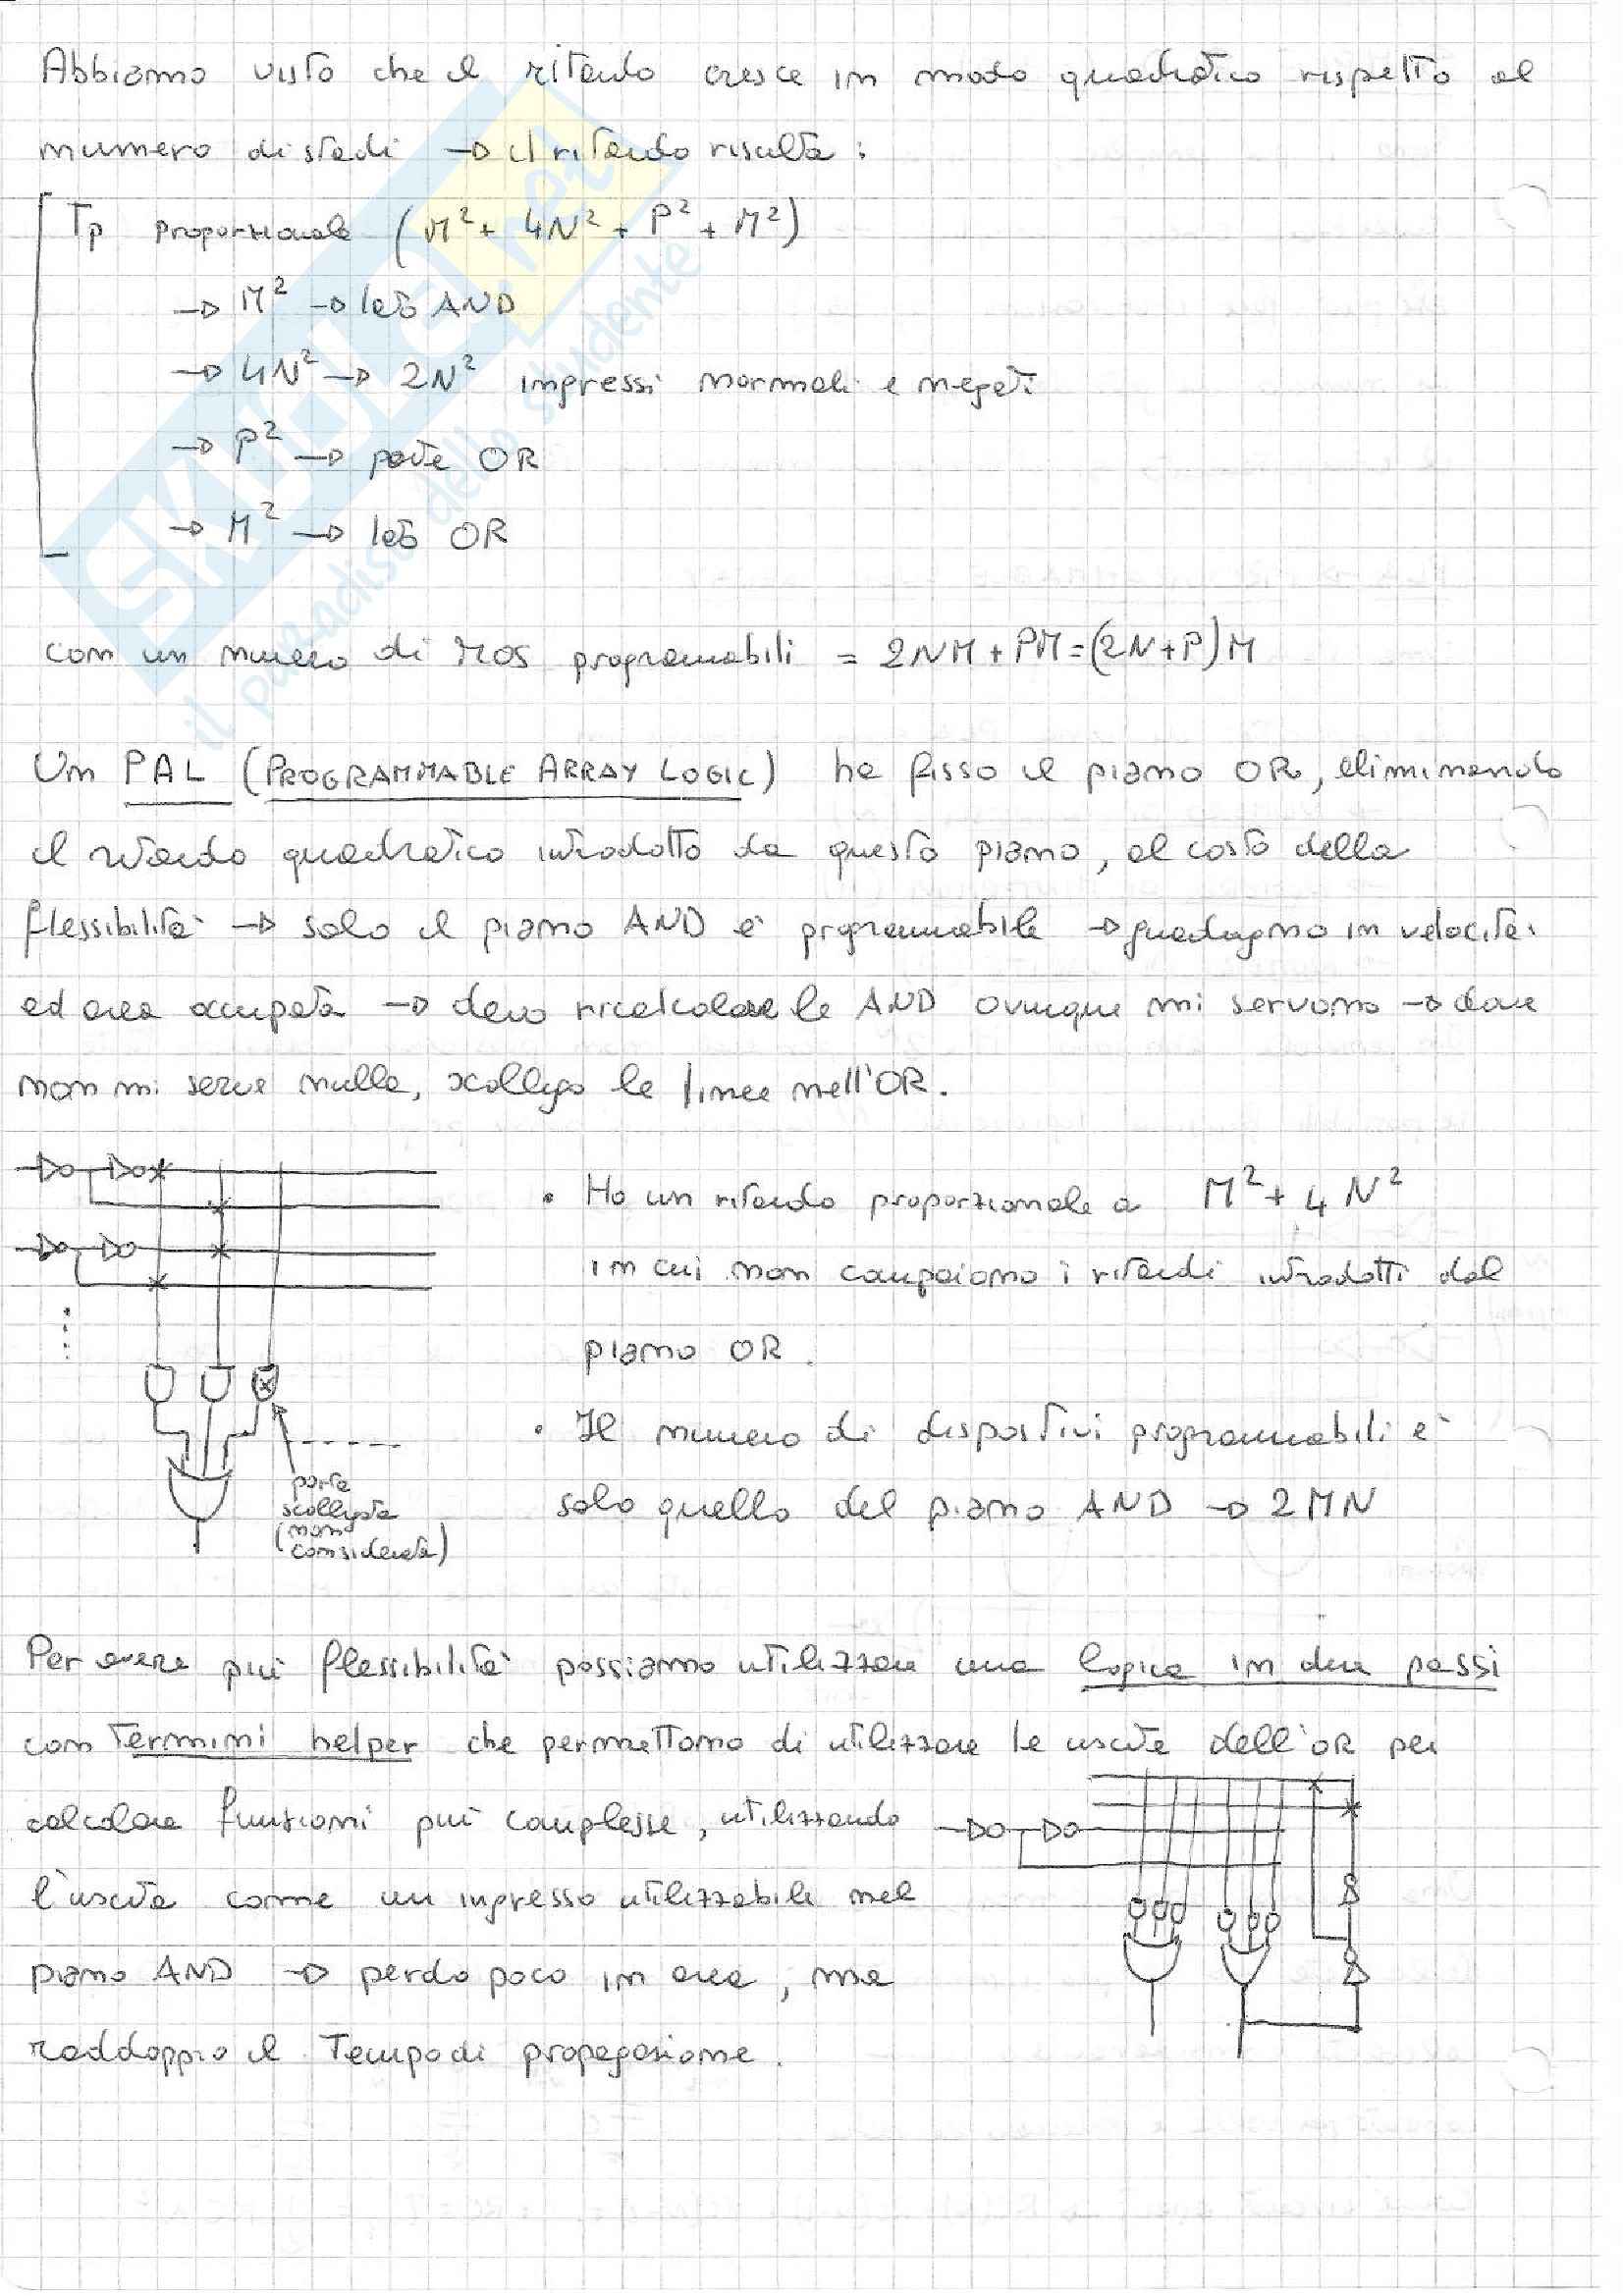 Abbiamo visto che il ritardo cresce in modo quadratico rispetto al
numero di stadi → il ritardo risulta:
Tp proporzionale (M² + 4N² + P² + M²)
→ M² → lato AND
→ 4N² → 2N² ingressi normali e negati
→ P² → porte OR
→ M² → lato OR
con un numero di MOS programmabili = 2NM + PM = (2N+P)M
Un PAL (PROGRAMMABLE ARRAY LOGIC) ha fisso il piano OR, eliminando
il ritardo quadratico introdotto da questo piano, al costo della
flessibilità → solo il piano AND è programmabile → guadagno in velocità
ed area occupata → devo ricalcolare le AND ovunque mi servono → dove
non mi serve nulla, scollego le linee nell'OR.
• Ho un ritardo proporzionale a M² + 4N²
in cui non compaiono i ritardi introdotti dal
piano OR.
• Il numero di dispositivi programmabili è
solo quello del piano AND → 2MN
porta
scollegata
(non
considerata)
Per avere più flessibilità possiamo utilizzare una logica in due passi
con termini helper che permettono di utilizzare le uscite dell'OR per
calcolare funzioni più complesse, utilizzando
l'uscita come un ingresso utilizzabile nel
piano AND → perdo poco in area, ma
raddoppio il tempo di propagazione.
SKUOLA.net
il paradiso dello studente